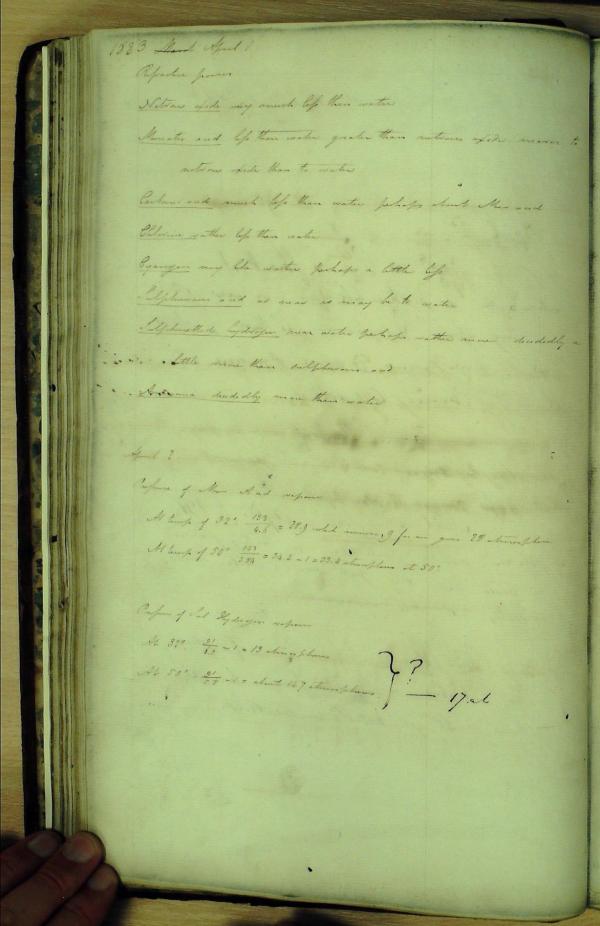 1823 March April 1
Refractive powers
Nitrous oxide very much less than water
Muriatic acid less than water greater than nitrous oxide nearer to
nitrous oxide than to water
Carbonic acid much less than water perhaps about Mur acid
Chlorine rather less than water
Cyanogen very like water perhaps a little less
Sulphurous acid as near as may be to water
Sulphuretted hydrogen near water perhaps rather more decidedly a
little more than sulphurous acid
Ammonia decidedly more than water
April 2
Pressure of Mur Acid vapour
At temp of 32° = 28.9 for air gives 28 atmospheres
At temp of 50° atmospheres at 50°
Pressure of Sul Hydrogen vapour
At 32° - 1 = 13 atmospheres
At 50° = about 14.7 atmospheres
} ? — 17 at